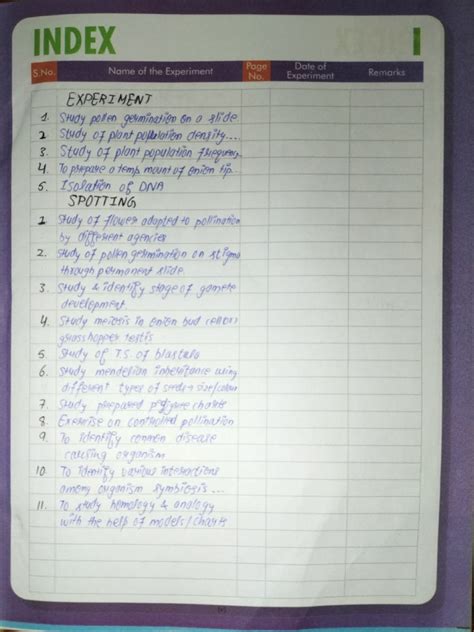 INDEX
S.No. Name of the Experiment Page No. Date of Experiment Remarks
EXPERIMENT
1. Study pollen germination on a slide
2 Study of plant population density....
3. Study of plant population frequency
4. To prepare a temp. mount of onion tip
5. Isolation of DNA
SPOTTING
1. Study of flower adapted to pollination
by different agencies
2. Study of pollen germination on stigma
through permanent slide.
3. Study & identify stage of gamete
development.
4. Study meiosis in onion bud cell or
grasshopper testis
5 Study of T.S. of blastula
6. Study mendelian inheritance using
different types of seeds
7. Study prepared pedigree charts
8. Exercise on controlled pollination
9. To identify common disease
causing organism
10. To identify various interactions
among organism symbiosis...
11. To study homology & analogy
with the help of models/charts